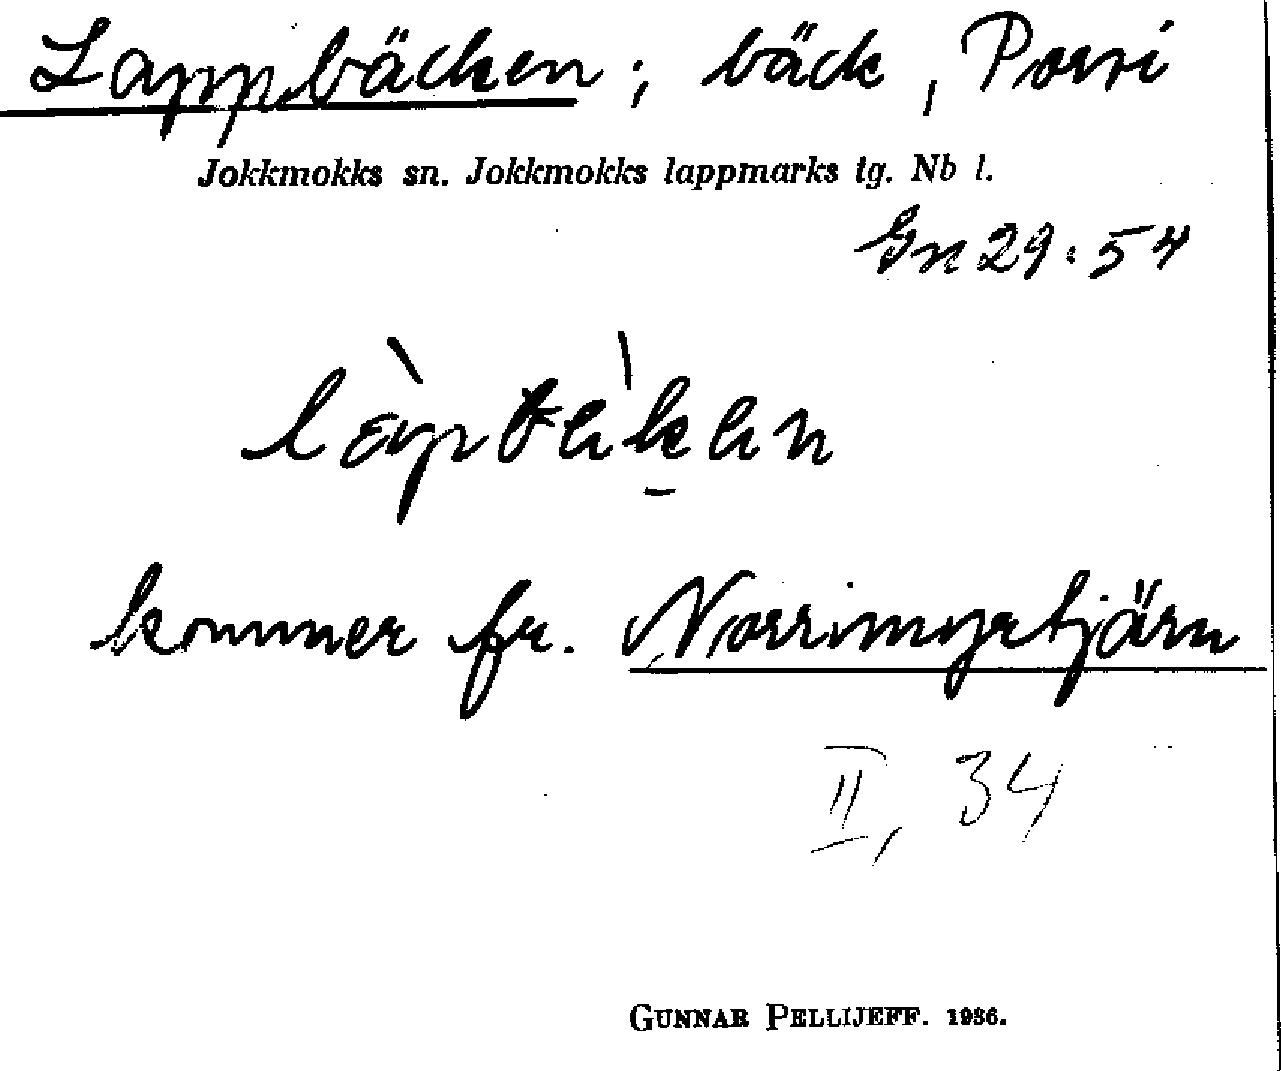 Lappbäcken; bäck, Porsi
Jokkmokks sn. Jokkmokks lappmarks tg. Nb l.
Gn 29:54
kommer fr. Norrimyrtjärn
II, 34
GUNNAR PELLIJEFF. 1936.